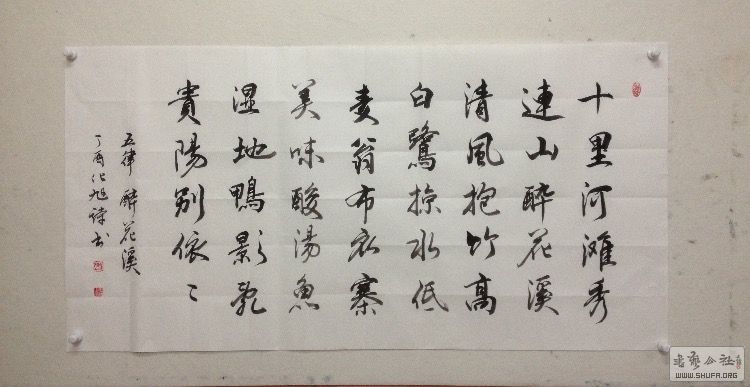 十里河滩秀
連山醉花溪
清風抱竹高
白鷺掠水低
麦翁布衣寨
美味酸湯魚
湿地鴨影乱
貴陽别依〻
五律 醉花溪
丁酉 旭詩书
书艺公社
WWW.SHUFA.ORG